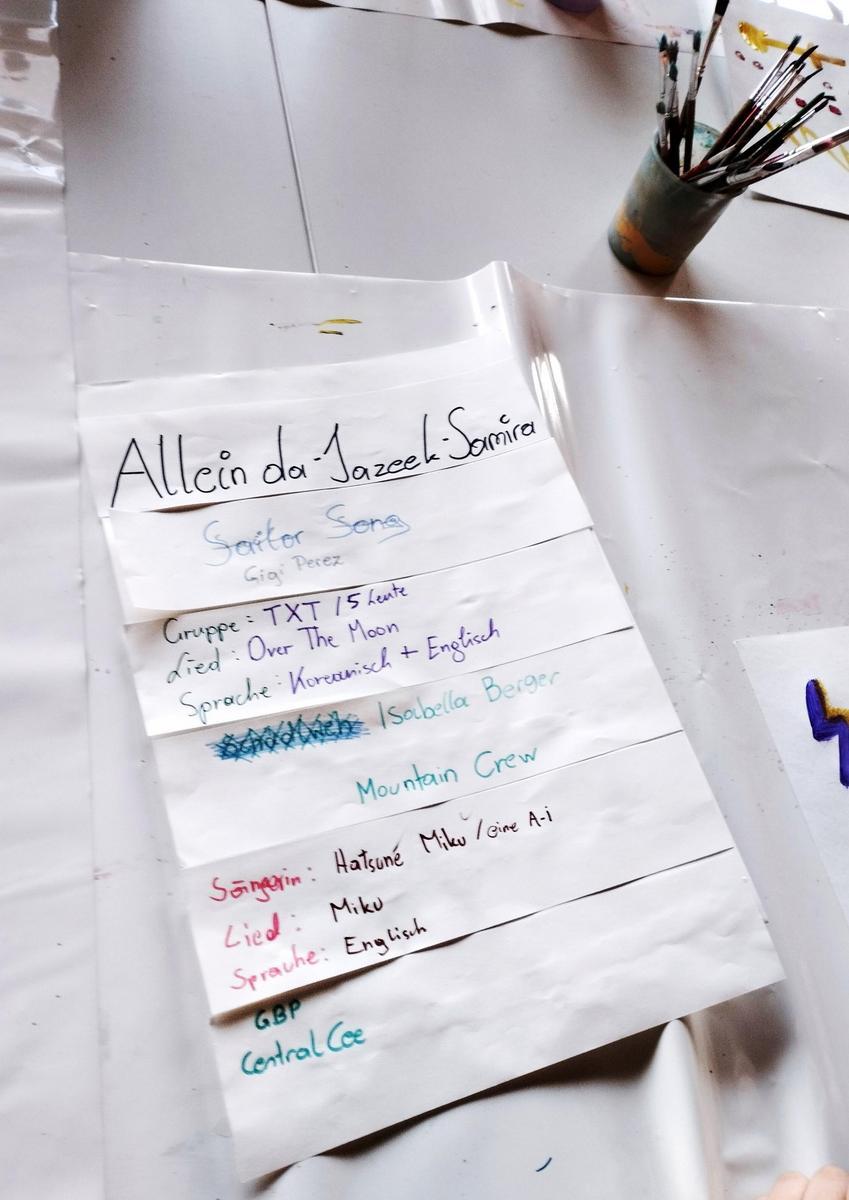 Allein da-Jazeek-Samira
Sailor Song
Gigi Perez
Gruppe: TXT / 5 Leute
Lied: Over The Moon
Sprache: Koreanisch + Englisch
Isabella Berger
Mountain Crew
Sängerin: Hatsuné Miku / eine A-i
Lied: Miku
Sprache: Englisch
GBP
Central Cee